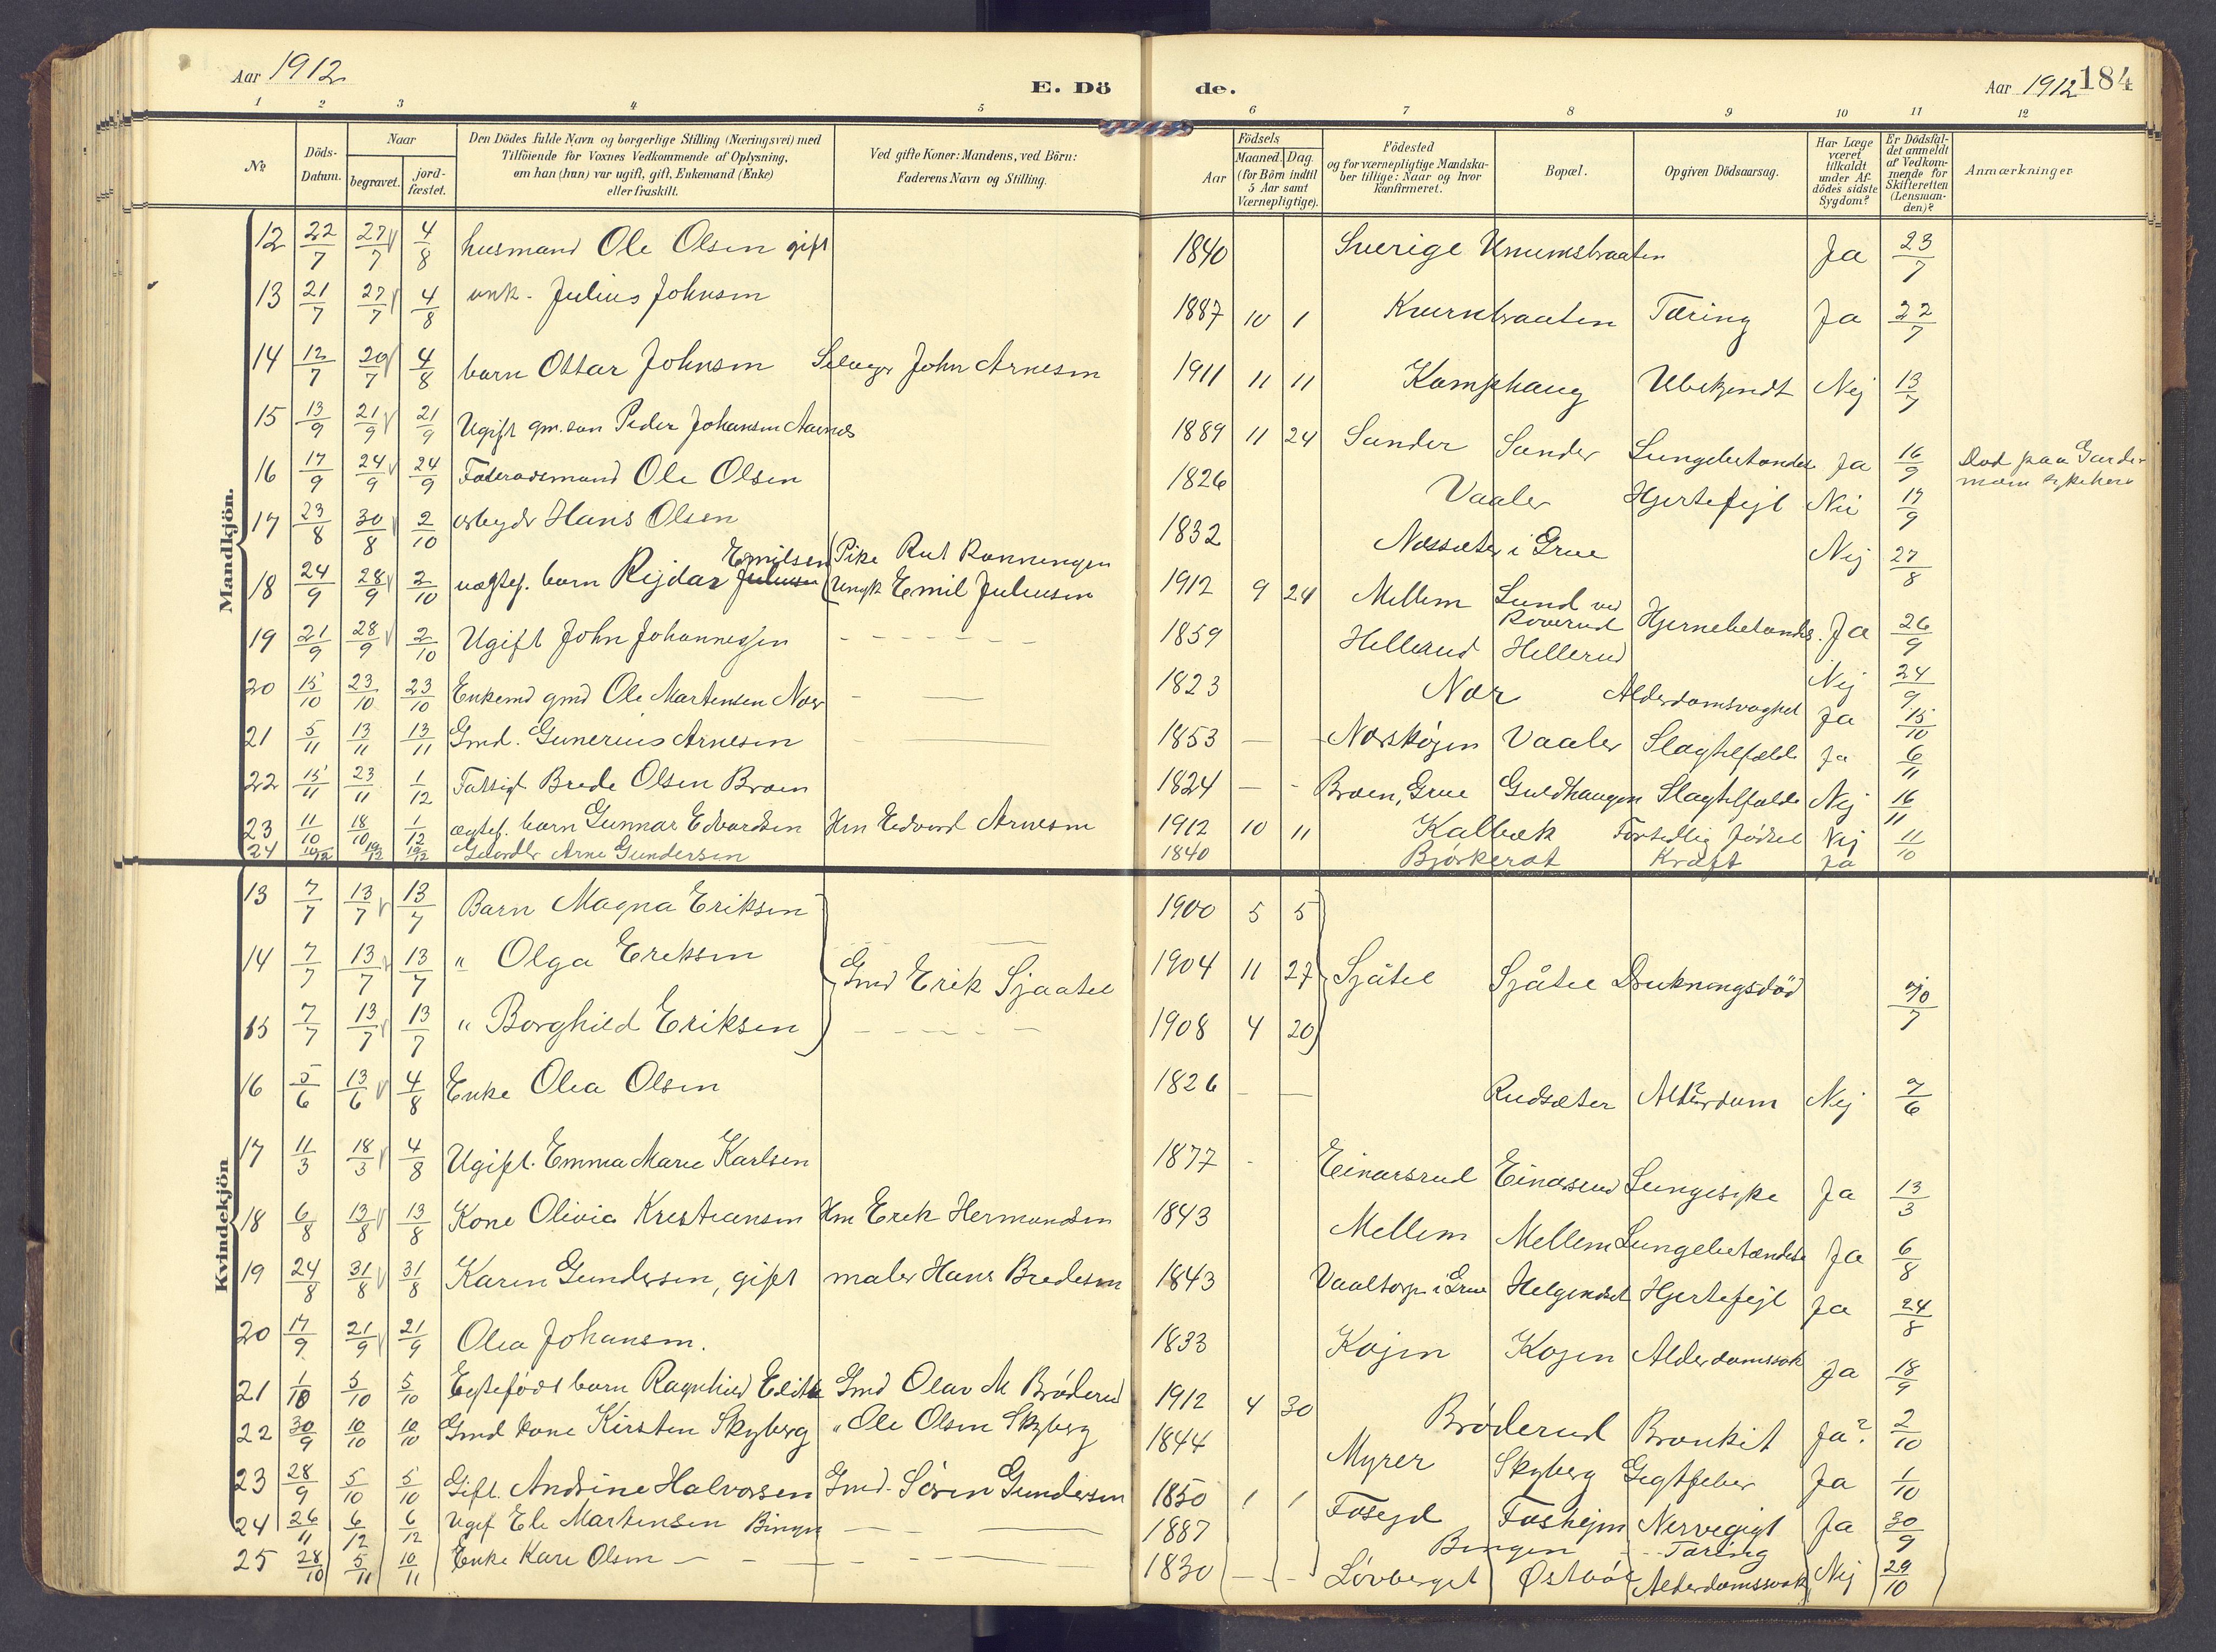 Aar 1912
E. Dö
de.
Aar 1912 184
1 2 3 4 5 6 7 8 9 10 11 12
No
Döds-Datum.
Naar
begravet.
jord-fæstet.
Den Dödes fulde Navn og borgerlige Stilling (Næringsvei) med
Tilföiende for Voxnes Vedkommende af Oplysning,
om han (hun) var ugift, gift, Enkemand (Enke)
eller fraskilt.
Ved gifte Koner: Mandens, ved Börn:
Faderens Navn og Stilling.
Födsels
Aar
Maaned. Dag.
(for Börn indtil
5 Aar samt
Værnepligtige).
Födested
og for værnepligtige Mandska-
ber tillige: Naar og hvor
Konfirmeret.
Bopæl.
Opgiven Dödsaarsag.
Har Læge
været
tilkaldt
under Af-
dödes sidste
Sygdom?
Er Dödsfal-
det anmeldt
af Vedkom-
mende for
Skifteretten
(Lensman-
den)?
Anmærkninger
Mandkjön.
12 22/7 27/7 4/8 husmand Ole Olsen gift 1840 Sverige Ja 23/7
13 21/7 27/7 4/8 unk. Julius Johnsen 1887 10 1 Kvernbraaten Tæring Ja 22/7
14 12/7 20/7 4/8 barn Ottar Johnsen Selveger John Arnesen 1911 11 11 Kamphaug Ubekjendt Nej 13/7
15 13/9 21/9 21/9 Ugift gm. søn Peder Johansen Aarnes 1889 11 24 Sander Sander Lungebetændelse Ja 16/9 Død paa Garder
moen sykehus
16 17/9 24/9 24/9 Føderaadsmand Ole Olsen 1826 Vaaler Hjertefejl Nei 19/9
17 23/8 30/8 2/10 arbejder Hans Olsen 1832 Næssæter i Grue Nej 27/8
18 24/9 28/9 2/10 uægtef. barn Rejdar Julius Emilsen Pike Rut Rønningen
Ungk Emil Juliussen 1912 9 24 Mellem Lund ved
Roverud Hjernebetændelse. Ja 26/9
19 21/9 28/9 2/10 Ugift John Johannessen 1859 Hellerud Hellerud Nej 24/9
20 15/10 23/10 23/10 Enkemd gmd Ole Martensen Nor 1823 Nor Alderdomsvaghet Ja 15/10
21 5/11 13/11 13/11 Gmd. Gunerius Arnesen 1853 Norskogen Vaaler Slagtilfælde Ja 6/11
22 15/11 23/11 1/12 Fattigl Brede Olsen Broen 1824 Broen, Grue Guldhaugen Slagtilfælde Nej 16/11
23 11/10 18/10 1/12 ægtef. barn Gunnar Edvardsen Hm Edvard Arnesen 1912 10 11 Kalbæk Fortidlig fødsel Nej 11/10
24 10/12 19/12 19/12 Arne Gundersen 1840 Kræft Ja
Kvindekjön
13 7/7 13/7 13/7 Barn Magna Eriksen 1900 5 5
14 7/7 13/7 13/7 " Olga Eriksen Gmd Erik Sjaatil 1904 11 27 Sjåtil Sjåtil Drukningsdød 10/7
15 7/7 13/7 13/7 " Borghild Eriksen 1908 4 20
16 5/6 13/6 4/8 Enke Olea Olsen 1826 Rudsæter Alderdom Nej 7/6
17 11/3 18/3 4/8 Ugift. Emma Marie Karlsen 1877 Einarsrud Einarsrud Lungesyke Ja 13/3
18 6/8 13/8 13/8 Kone Olivia Kristiansen Hm Erik Hermundsen 1843 Mellem Mellem Lungebetændelse Ja 6/8
19 24/8 31/8 31/8 Karen Gundersen, gift maler Hans Bredesen 1843 Vaaltorp i Grue Helgeneset Hjertefejl Ja 24/8
20 17/9 21/9 21/9 Olea Johansen. 1833 Kojen Kojen Alderdomssvak Ja 18/9
21 1/10 5/10 5/10 Egtefødt barn Ragnhild Edith Gmd Olav M Brøderud 1912 4 30 Brøderud Bronkit Ja? 2/10
22 30/9 10/10 10/10 Gmd kone Kirsten Skyberg " Ole Olsen Skyberg 1844 Myrer Skyberg Gigtfeber Ja 1/10
23 28/9 5/10 5/10 Gift. Andrine Halvorsen Gmd. Søren Gundersen 1850 1 1 Foseyd Foshejm Nervegigt Ja 30/9
24 26/11 6/12 6/12 Ugift Eli Martinsen Bingen 1887 Bingen Tæring
25 28/10 5/11 10/11 Enke Kari Olsen 1830 Løvberget Østbøl Alderdomssvak Nej 29/10